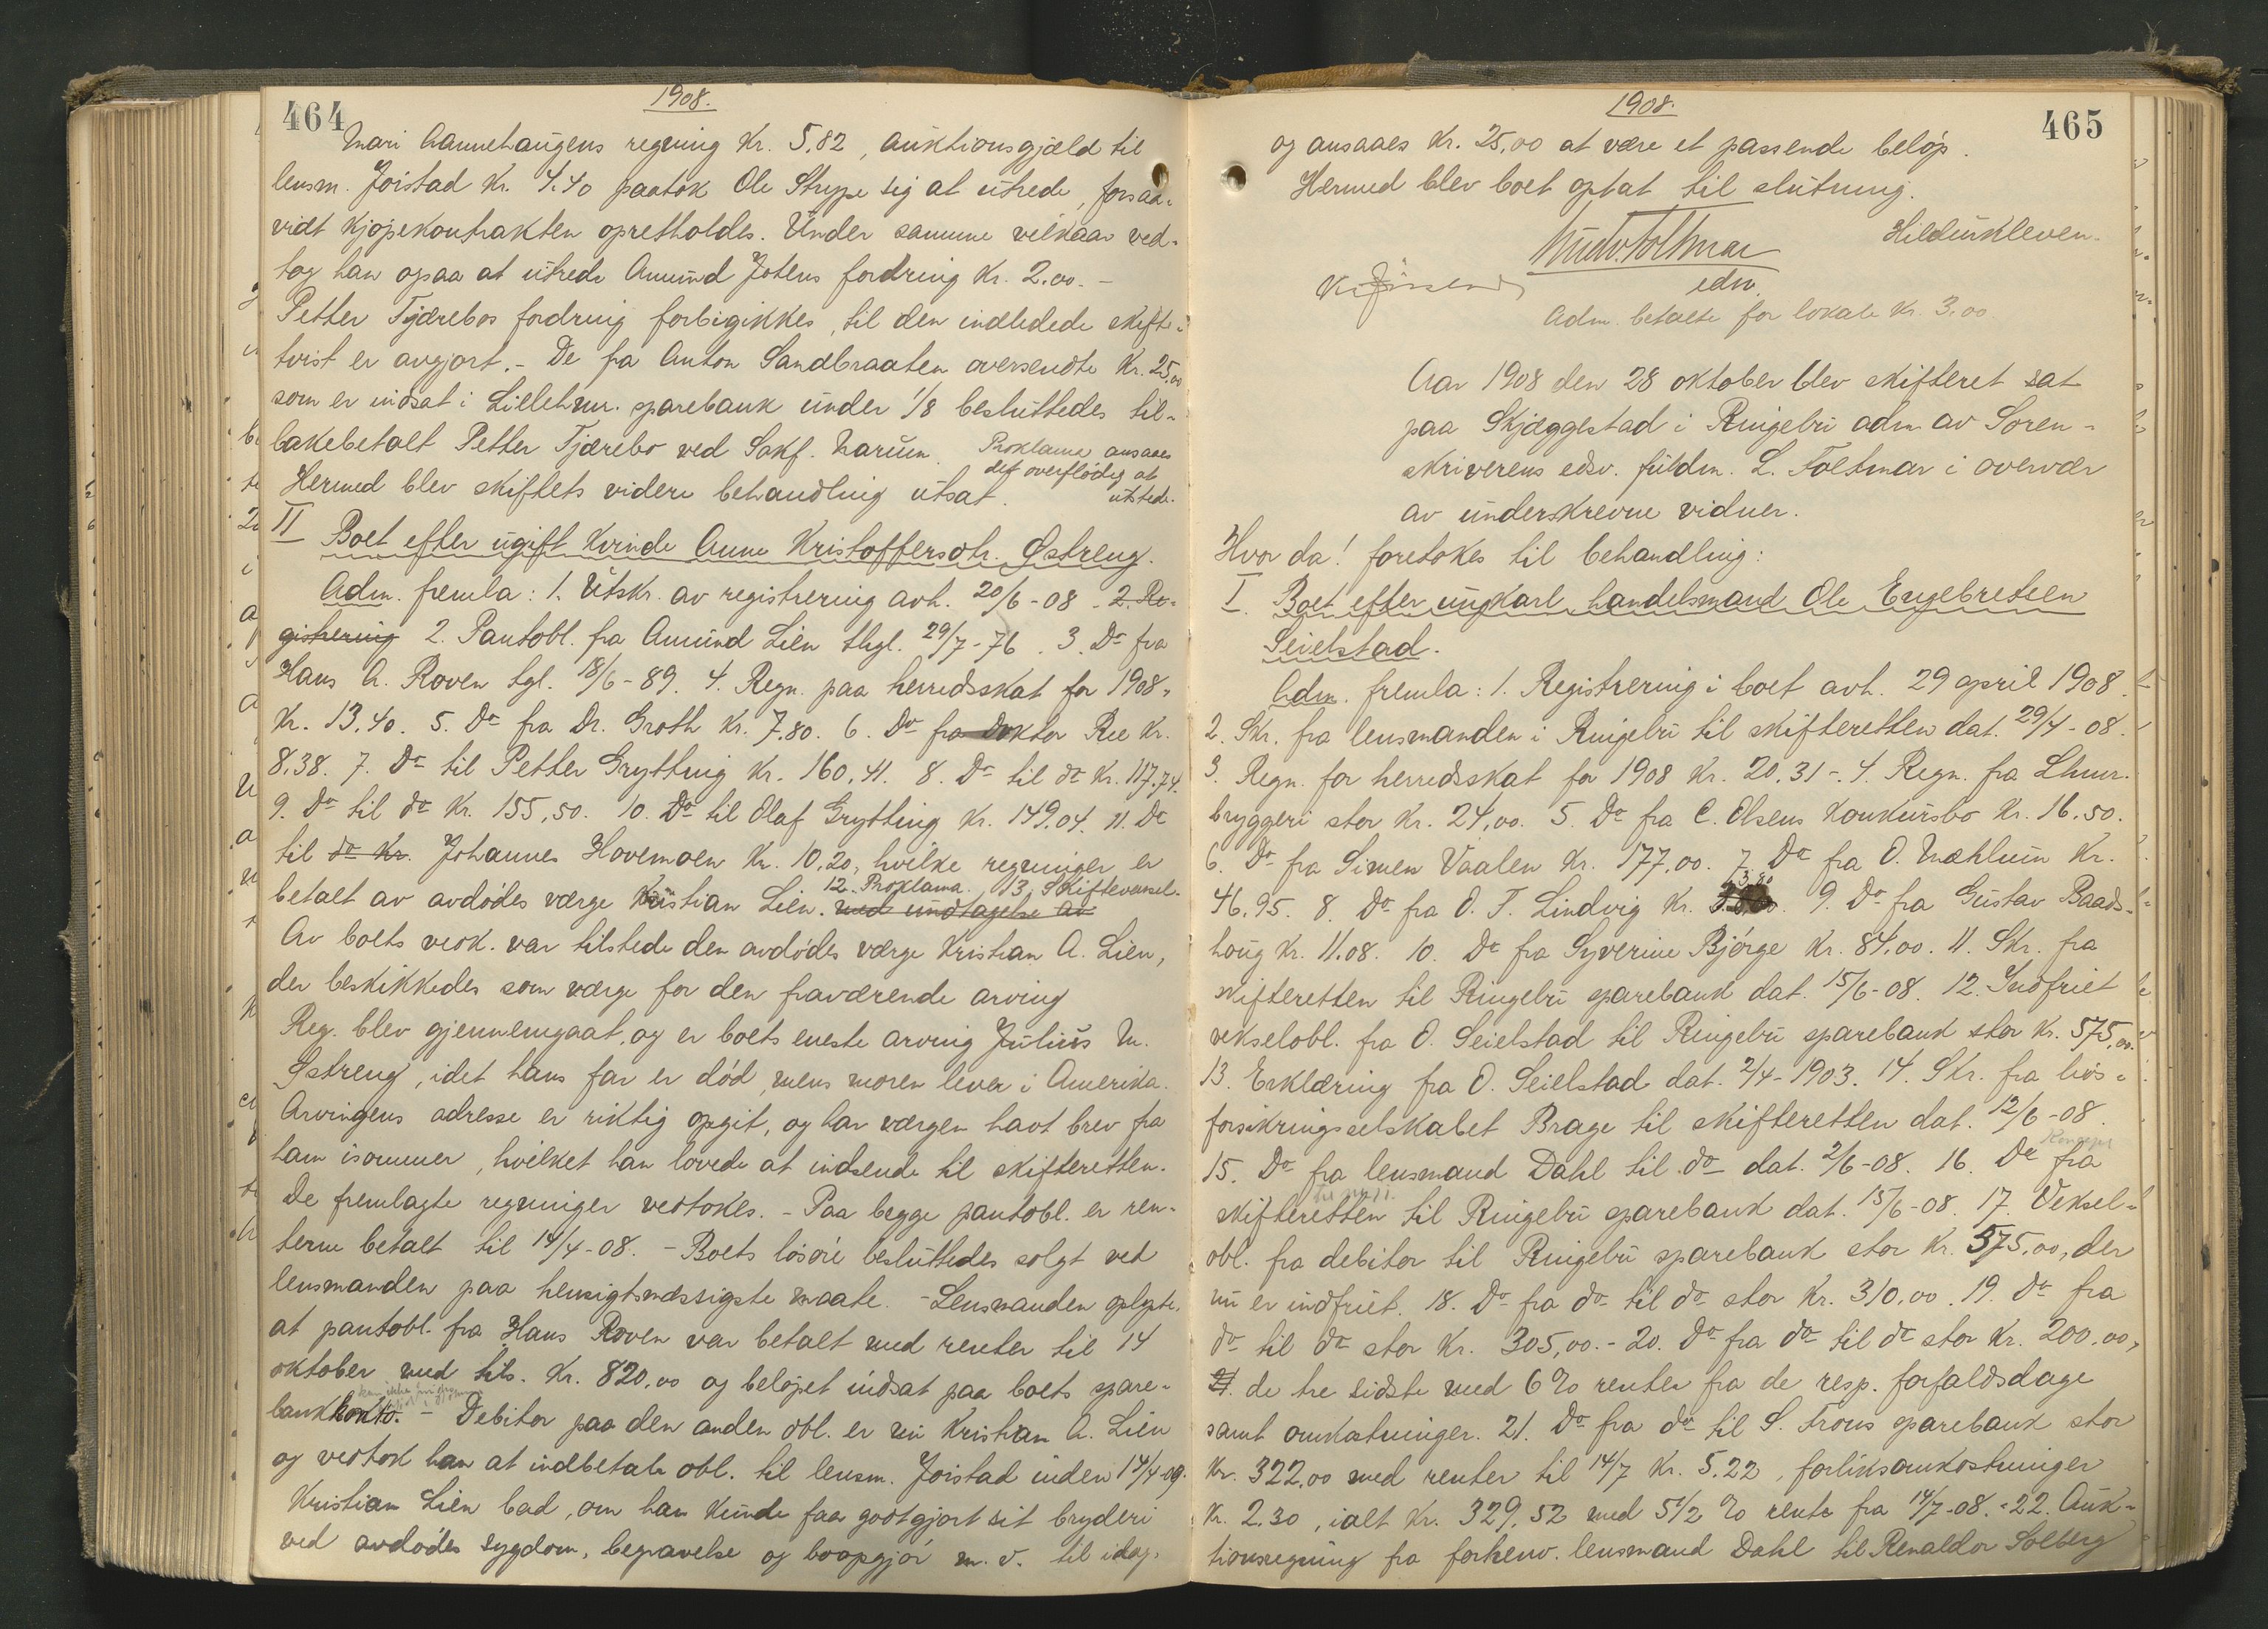 464
1908.
Mari Aannehaugens regning Kr. 5,82, auktionsgjæld til
lensm. Joistad Kr. 4.40 paatok Ole Strype sig at utrede, forsaa-
vidt kjøpekontrakten opretholdes. Under samme vilkaar ved-
tog han ogsaa at utrede Amund Jotens fordring Kr. 2.00. -
Petter Tjærebos fordring forbigikkes, til den indledede skifte-
tvist er avgjort. - De fra Anton Sandbraaten oversendte Kr. 25,00
som er indsat i Lillehmr. sparebank under 1/8 besluttedes til-
bakebetalt Petter Tjærebo ved Sakf. Narum. Proklama ansaaes
det overflødig at
Hermed blev skiftets videre behandling utsat. utstede.
II Boet efter ugift kvinde Anne Kristoffersdtr. Østreng.
Adm. fremla: 1. Utskr. av registrering avh. 20/6-08 - 2. Re-
gistrering 2. Pantobl. fra Amund Lien thgl. 29/7-76. 3. Do fra
Hans A. Roven tgl. 18/6-89. 4. Regn. paa herredsskat for 1908,
Kr. 13.40. 5. Do fra Dr. Groth Kr. 7.80. 6. Do fra Doktor Ree Kr.
8.38. 7. Do til Petter Grytting Kr. 160.41. 8. Do til do Kr. 117.74.
9. Do til do Kr. 155,50. 10. Do til Olaf Grytting Kr. 149.04. 11. Do
til do Kr. Johannes Hovemoen Kr. 10.20, hvilke regninger er
12. Proklama. 13. Skiftevarsel.
betalt av avdødes værge Kristian Lien. med undtagelse av
Av boets vedk. var tilstede den avdødes værge Kristian A. Lien,
der beskikkedes som værge for den fraværende arving
Reg. blev gjennemgaat, og er boets eneste arving Julius M.
Østreng, idet hans far er død, mens moren lever i Amerika.
Arvingens adresse er riktig opgit, og har værgen havt brev fra
ham isommer, hvilket han lovede at indsende til skifteretten.
De fremlagte regninger vedtokes. - Paa begge pantobl. er ren-
terne betalt til 14/4-08. - Boets løsøre besluttedes solgt ved
lensmanden paa hensigtsmæssigste maate. - Lensmanden oplyste,
at pantobl. fra Hans Roven var betalt med renter til 14
oktober med tils. Kr. 820,00 og beløpet indsat paa boets spare-
bankkonto. - Debitor paa den anden obl. er nu Kristian A. Lien
og vedtok han at indbetale obl. til lensm. Joistad inden 14/4-09.
Kristian Lien bad, om han kunde faa godtgjort sit bryderi
ved avdødes sygdom, begravelse og boopgjør m. v. til idag,
1908.
465
og ansaaes Kr. 25,00 at være et passende beløp.
Hermed blev boet optat til slutning.
Hildeukleven.
edsv.
Adm. betalte for lokale Kr. 3.00.
Aar 1908 den 28 oktober blev skifteret sat
paa Skjæggestad i Ringebu adm av Soren-
skriverens edsv. fuldm. L. Foltmar i overvær
av underskrevne vidner.
Hvor da! foretokes til behandling:
I. Boet efter ungkarl handelsmand Ole Engebretsen
Seielstad.
Adm. fremla: 1. Registrering i boet avh. 29 april 1908.
2. Skr. fra lensmanden i Ringebu til skifteretten dat. 29/4-08.
3. Regn. for herredsskat for 1908 Kr. 20.31 -. 4. Regn. fra Lhmr.
bryggeri stor Kr. 24,00. 5. Do fra C. Olsens konkursbo Kr. 16.50.
6. Do fra Simen Vaalen Kr. 177.00. 7. Do fra O. Mæhlum Kr.
46.95. 8. Do fra O. F. Lindvig Kr. 13,80. 9. Do fra Gustav Baads-
houg Kr. 11.08. 10. Do fra Syverine Bjørge Kr. 84.00. 11. Skr. fra
skifteretten til Ringebu sparebank dat. 15/6-08. 12. Indfriet
vekselobl. fra O. Seielstad til Ringebu sparebank stor Kr. 575,00.
13. Erklæring fra O. Seielstad dat. 2/4-1903. 14. Skr. fra livs-
forsikringsselskabet Brage til skifteretten dat. 12/6-08.
15. Do fra lensmand Dahl til do dat. 2/6-08. 16. Do fra
skifteretten til Ringebu sparebank dat. 15/6-08. 17. Veksel-
obl. fra debitor til Ringebu sparebank stor Kr. 575,00, der
nu er indfriet. 18. Do fra do til do stor Kr. 310,00. 19. Do fra
do til do stor Kr. 305,00. - 20. Do fra do til do stor Kr. 200.00,
21. de tre sidste med 6 % renter fra de resp. forfaldsdage
samt omkostninger. 21. Do fra do til S. Frons sparebank stor
Kr. 322,00 med renter til 14/7 Kr. 5.22, forliksomkostninger
Kr. 2.30, ialt Kr. 329.52 med 5 1/2 % rente fra 14/7-08. - 22. Auk-
tionsregning fra forhenv. lensmand Dahl til Renaldor Solberg